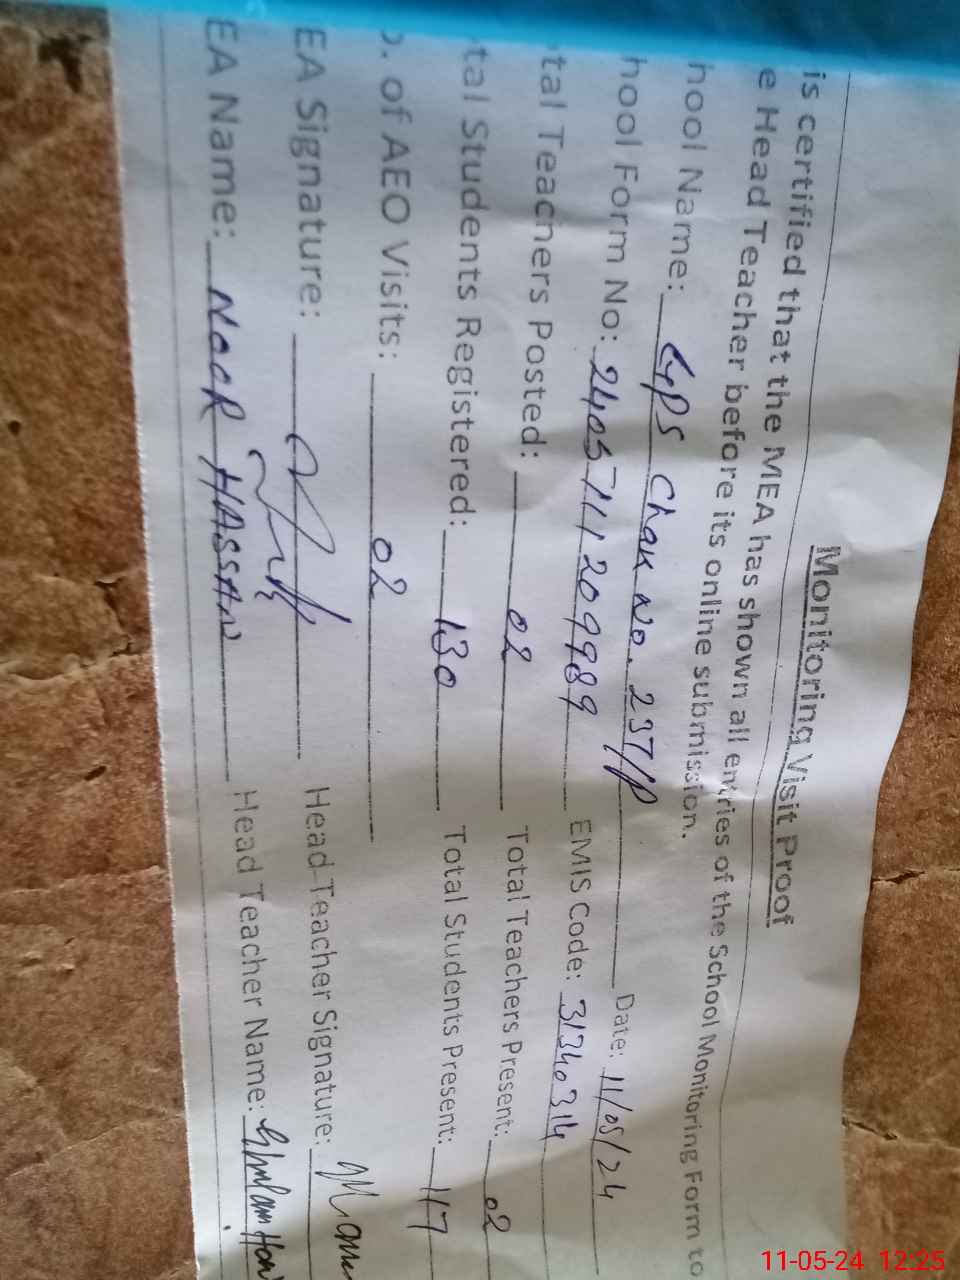 Monitoring Visit Proof
is certified that the MEA has shown all entries of the School Monitoring Form to
e Head Teacher before its online submission.
hool Name: GPS Chak No. 237/P Date: 11/05/24
hool Form No: 2405711209989 EMIS Code: 31340314
tal Teachers Posted: 02 Total Teachers Present: 02
tal Students Registered: 130 Total Students Present: 117
o. of AEO Visits: 02
EA Signature: Head Teacher Signature:
EA Name: NOOR HASSAN Head Teacher Name: Ghulam
11-05-24 12:25